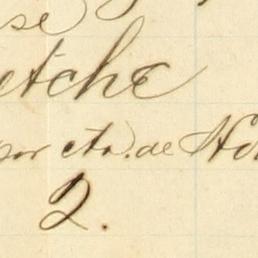 se
etche
por cta. de
2.